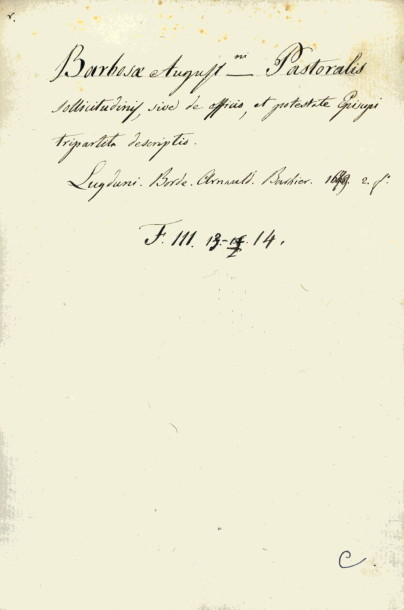 r.
Barbosæ August.ni — Pastoralis
sollicitudinis, sive de officio, et potestate Episcopi
tripartita descriptio.
Lugduni. Borde. Arnauld. Barbier. 2. fº
F. III. 13.- 14.
C.